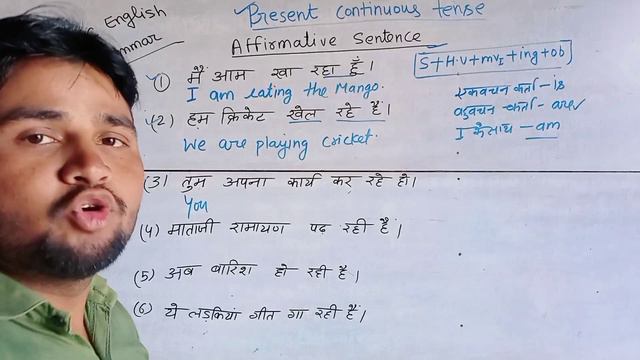 English
Present continuous tense
mmar
Affirmative Sentence
S+H.V+mv₁+ing+ob
(1) मैं आम खा रहा हूँ।
I am eating the Mango.
एकवचन कर्ता - is
(2) हम क्रिकेट खेल रहे हैं।
बहुवचन कर्ता - are
we are playing cricket.
I के साथ - am
(3) तुम अपना कार्य कर रहे हो।
You
(4) माताजी रामायण पढ़ रही हैं।
(5) अब बारिश हो रही है।
(6) ये लड़कियां गीत गा रही हैं।